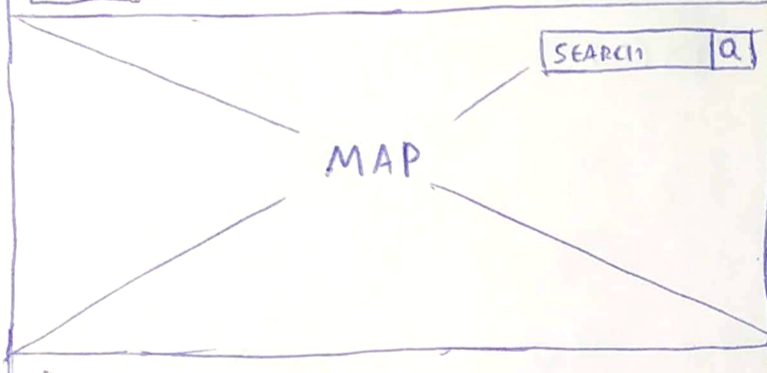 SEARCH
MAP